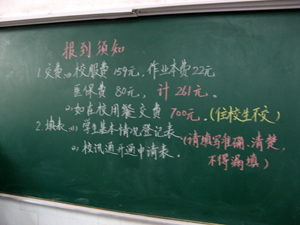 报到须知
1.交费:(1)校服费159元,作业本费22元
医保费80元,计261元。
(2)如在校用餐交费700元。(住校生不交)
2.填表:(1)学生基本情况登记表
(2)校讯通开通申请表。
(请填写准确、清楚,
不得漏填)